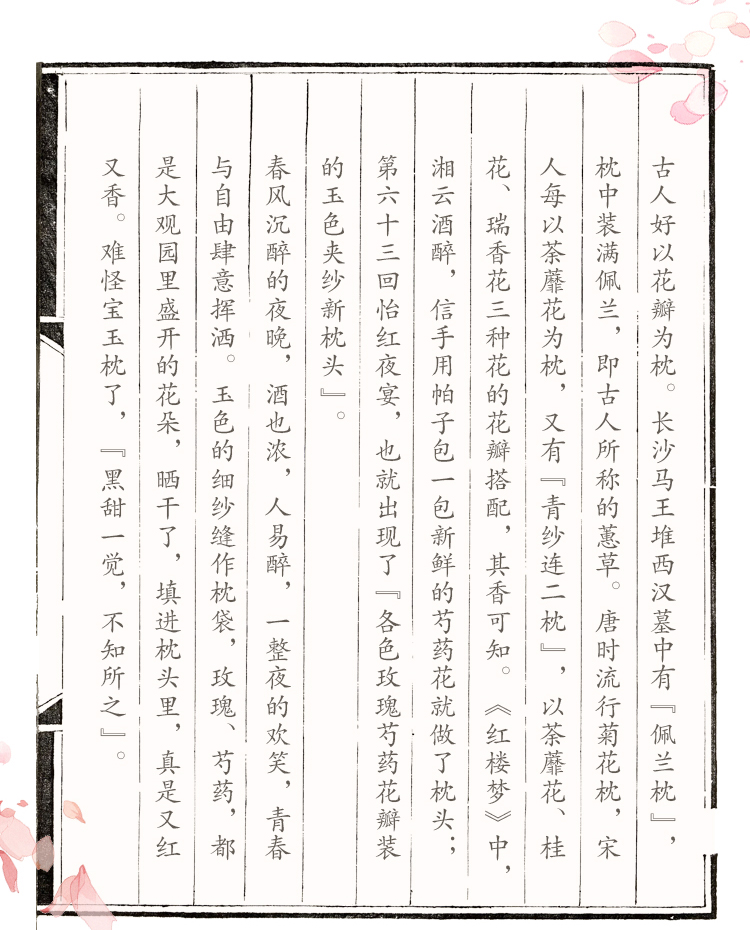 古人好以花瓣为枕。长沙马王堆西汉墓中有『佩兰枕』，
枕中装满佩兰，即古人所称的蕙草。唐时流行菊花枕，宋
人每以荼蘼花为枕，又有『青纱连二枕』，以荼蘼花、桂
花、瑞香花三种花的花瓣搭配，其香可知。《红楼梦》中，
湘云酒醉，信手用帕子包一包新鲜的芍药花就做了枕头；
第六十三回怡红夜宴，也就出现了『各色玫瑰芍药花瓣装
的玉色夹纱新枕头』。
春风沉醉的夜晚，酒也浓，人易醉，一整夜的欢笑，青春
与自由肆意挥洒。玉色的细纱缝作枕袋，玫瑰、芍药，都
是大观园里盛开的花朵，晒干了，填进枕头里，真是又红
又香。难怪宝玉枕了，『黑甜一觉，不知所之』。